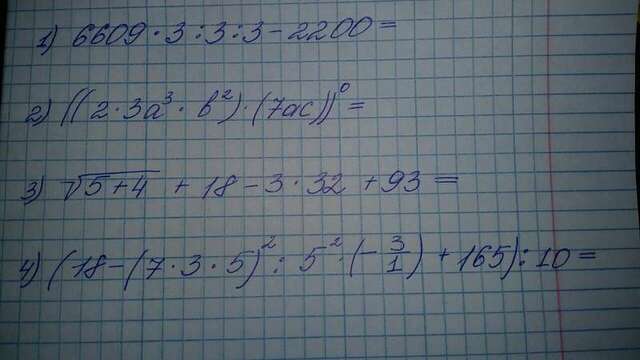 1) 6609 · 3 : 3 : 3 - 2200 =
2) ((2 · 3a³ · b²) · (7ac))⁰ =
3) √(5+4) + 18 - 3 · 32 + 93 =
4) (18 - (7 · 3 · 5)² : 5² · (-3/1) + 165) : 10 =